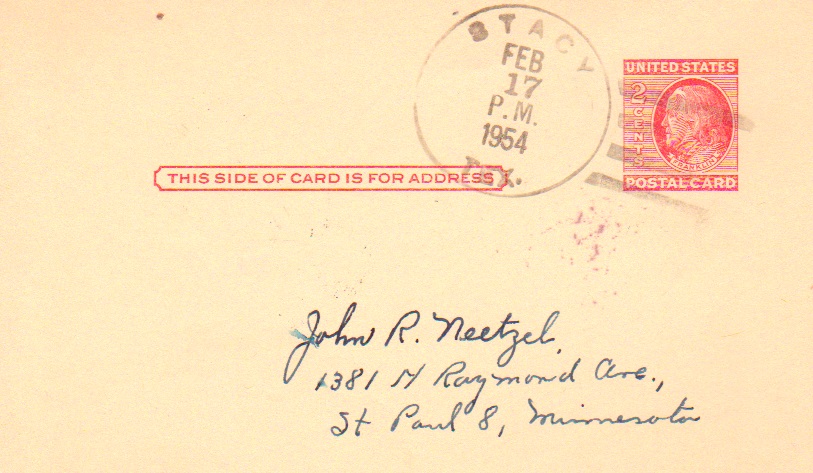 STACY
FEB
17
P.M.
1954
TEX.
UNITED STATES
2
CENTS
FRANKLIN
POSTAL CARD
THIS SIDE OF CARD IS FOR ADDRESS
John R. Neetzel,
1381 N Raymond Ave.,
St Paul 8, Minnesota